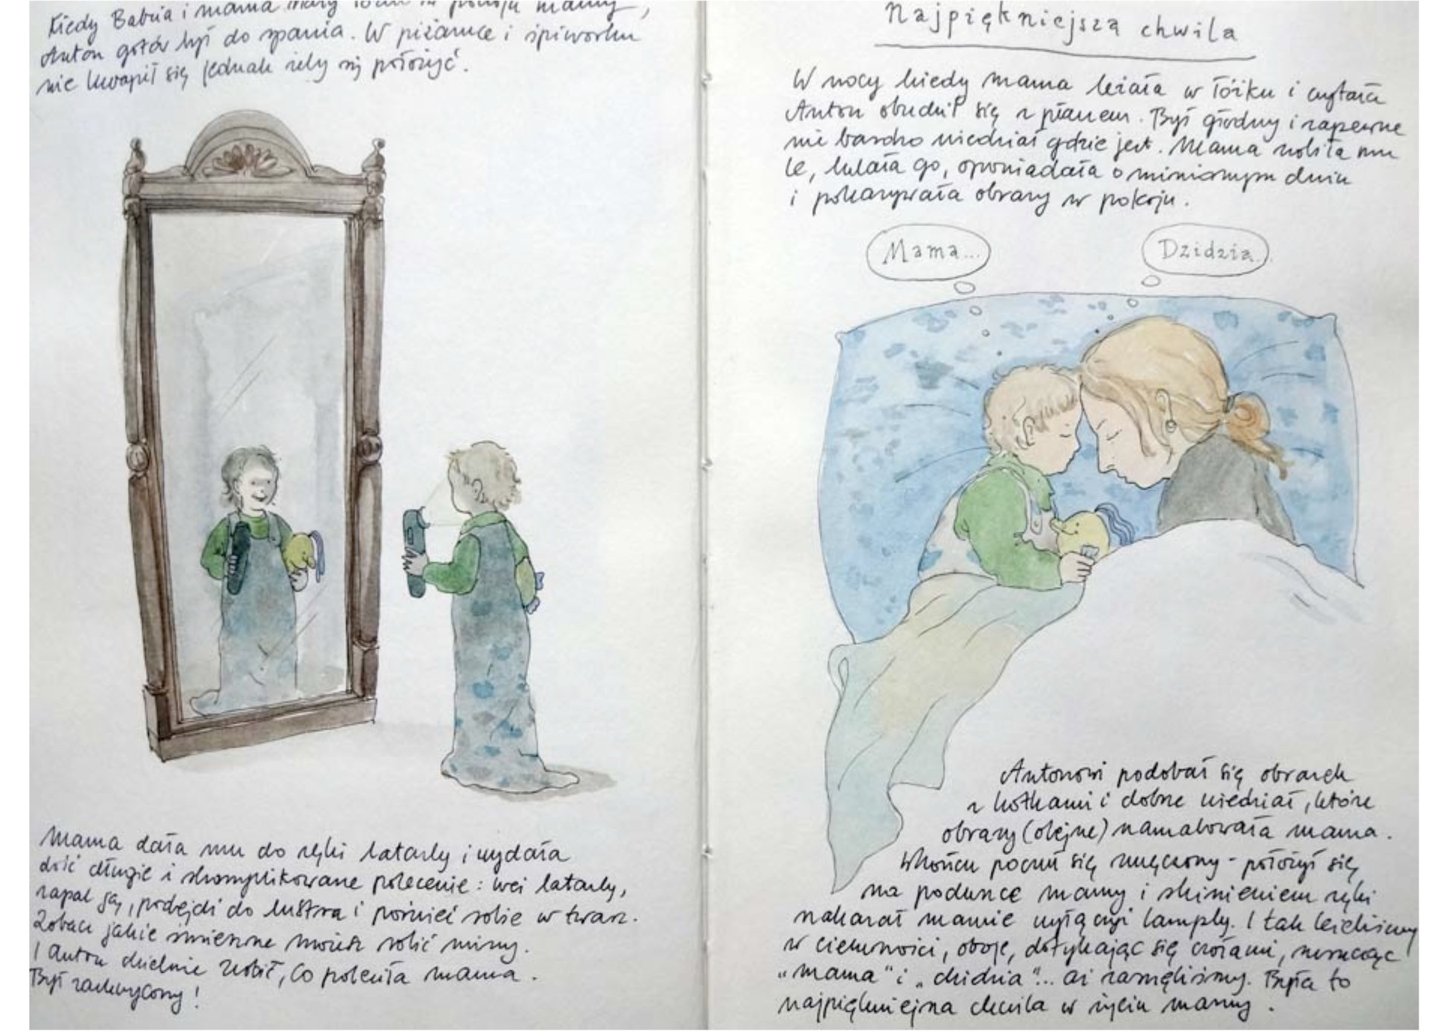 Kiedy Babcia i mama w pokoju mamy,
Anton gotów był do spania. W piżamce i śpiworku
nie kwapił się jednak żeby się położyć.
Mama dała mu do ręki latarkę i wydała
dość długie i skomplikowane polecenie: weź latarkę,
zapal ją, podejdź do lustra i poświeć sobie w twarz.
Zobacz jakie śmieszne możesz robić miny.
I Anton dzielnie zrobił, co poleciła mama.
Był zachwycony!
Najpiękniejsza chwila
W nocy kiedy mama leżała w łóżku i czytała
Anton obudził się z płaczem. Był głodny i zapewne
nie bardzo wiedział gdzie jest. Mama zrobiła mu
, lulała go, opowiadała o minionym dniu
i pokazywała obrazy w pokoju.
Mama...
Dzidzia...
Antonowi podobał się obrazek
z kotkami i dobrze wiedział, które
obrazy (olejne) namalowała mama.
W końcu poczuł się zmęczony - położył się
na poduszce mamy i skinieniem ręki
nakazał mamie wyłączyć lampkę. I tak leżeliśmy
w ciemności, oboje, dotykając się czołami, mrucząc
„mama" i „dzidzia"... aż zasnęliśmy. Była to
najpiękniejsza chwila w życiu mamy.